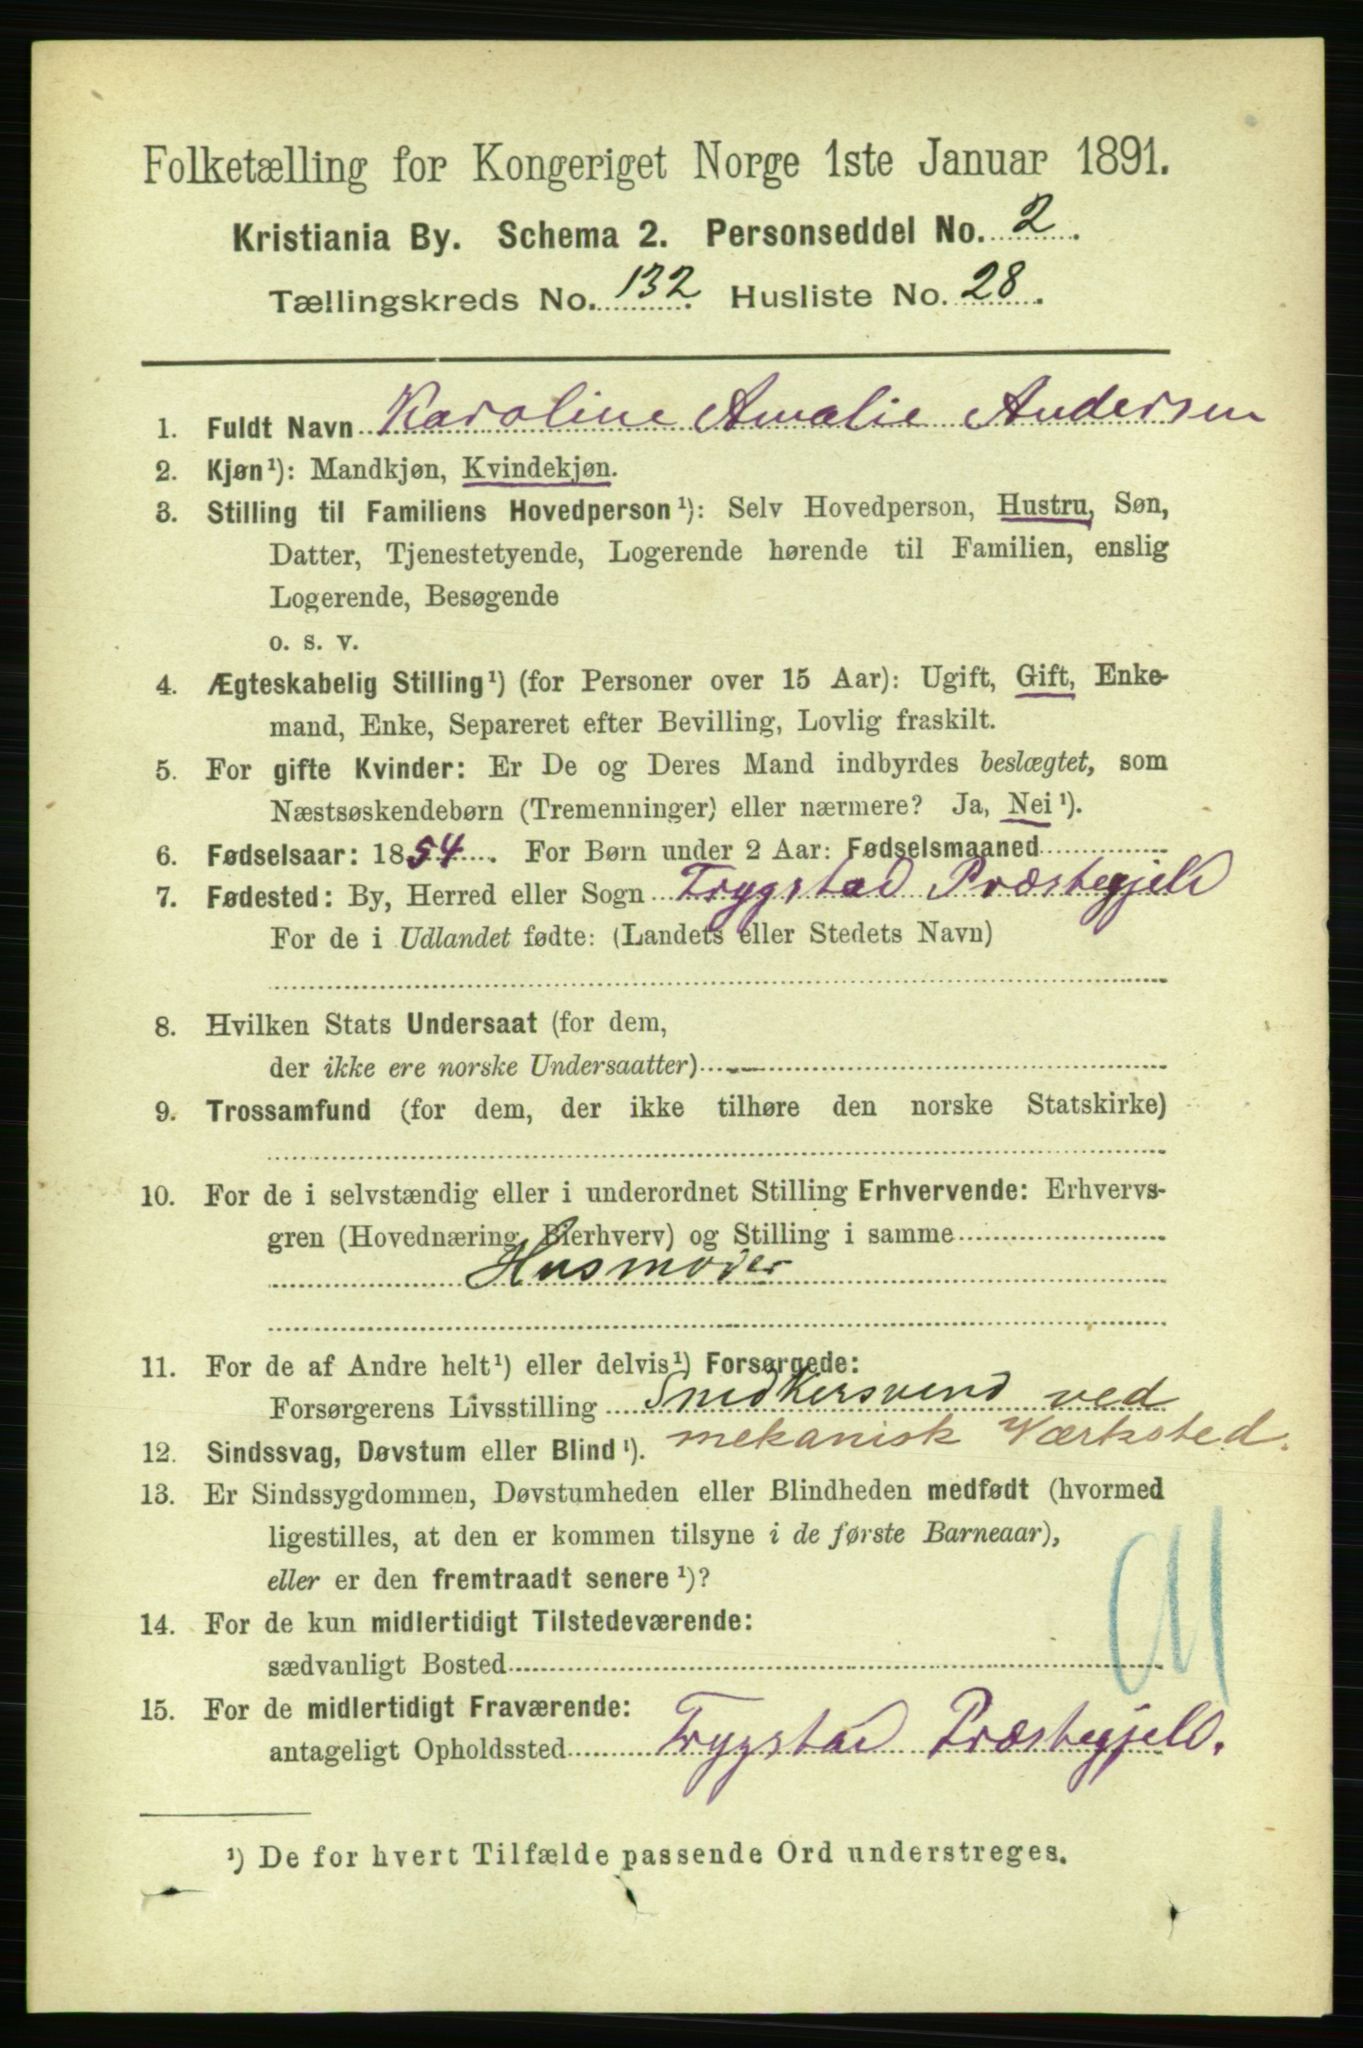 Folketælling for Kongeriget Norge 1ste Januar 1891.
Kristiania By. Schema 2. Personseddel No. 2.
Tællingskreds No. 132. Husliste No. 28.
1. Fuldt Navn Karoline Amalie Andersen
2. Kjøn¹): Mandkjøn, Kvindekjøn.
3. Stilling til Familiens Hovedperson¹): Selv Hovedperson, Hustru, Søn,
Datter, Tjenestetyende, Logerende hørende til Familien, enslig
Logerende, Besøgende
o. s. v.
4. Ægteskabelig Stilling¹) (for Personer over 15 Aar): Ugift, Gift, Enke-
mand, Enke, Separeret efter Bevilling, Lovlig fraskilt.
5. For gifte Kvinder: Er De og Deres Mand indbyrdes beslægtet, som
Næstsøskendebørn (Tremenninger) eller nærmere? Ja, Nei¹).
6. Fødselsaar: 1854. For Børn under 2 Aar: Fødselsmaaned
7. Fødested: By, Herred eller Sogn Trygstad Præstegjeld
For de i Udlandet fødte: (Landets eller Stedets Navn)
8. Hvilken Stats Undersaat (for dem,
der ikke ere norske Undersaatter)
9. Trossamfund (for dem, der ikke tilhøre den norske Statskirke)
10. For de i selvstændig eller i underordnet Stilling Erhvervende: Erhvervs-
gren (Hovednæring, Bierhverv) og Stilling i samme
Husmoder
11. For de af Andre helt¹) eller delvis¹) Forsørgede:
Forsørgerens Livsstilling Snedkersvend ved
mekanisk Værksted.
12. Sindssvag, Døvstum eller Blind¹).
13. Er Sindssygdommen, Døvstumheden eller Blindheden medfødt (hvormed
ligestilles, at den er kommen tilsyne i de første Barneaar),
eller er den fremtraadt senere¹)?
14. For de kun midlertidigt Tilstedeværende:
sædvanligt Bosted
15. For de midlertidigt Fraværende:
antageligt Opholdssted Trygstad Præstegjeld.
¹) De for hvert Tilfælde passende Ord understreges.